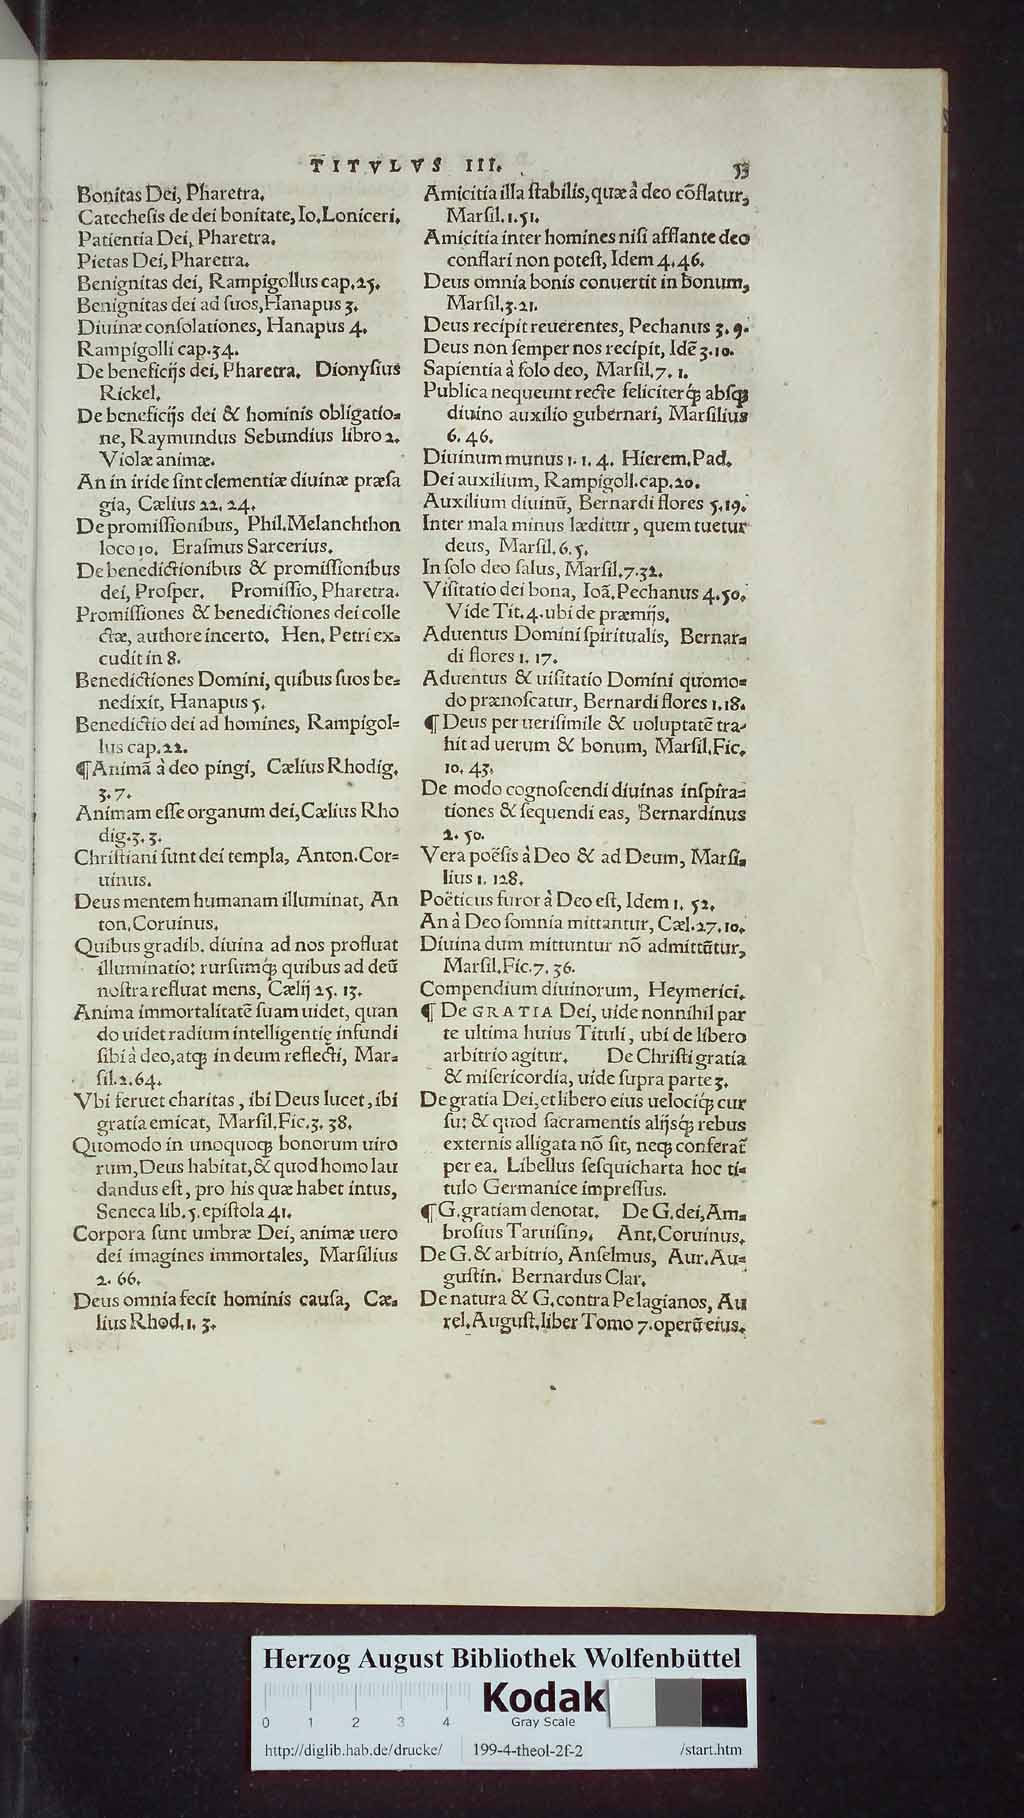 TITVLVS III.
53
Bonitas Dei, Pharetra.
Catecheſis de dei bonitate, Io. Loniceri.
Patientia Dei, Pharetra.
Pietas Dei, Pharetra.
Benignitas dei, Rampigollus cap.25.
Benignitas dei ad ſuos, Hanapus 3.
Diuinæ conſolationes, Hanapus 4.
Rampigolli cap.34.
De beneficijs dei, Pharetra. Dionyſius
Rickel.
De beneficijs dei & hominis obligatio=
ne, Raymundus Sebundius libro 2.
Violæ animæ.
An in iride ſint clementiæ diuinæ præſa
gia, Cælius 22. 24.
De promiſſionibus, Phil. Melanchthon
loco 10. Eraſmus Sarcerius.
De benedictionibus & promiſſionibus
dei, Proſper. Promiſſio, Pharetra.
Promiſſiones & benedictiones dei colle
ctæ, authore incerto. Hen. Petri ex=
cudit in 8.
Benedictiones Domini, quibus ſuos be=
nedixit, Hanapus 5.
Benedictio dei ad homines, Rampigol=
lus cap.22.
¶ Animā à deo pingi, Cælius Rhodig.
3. 7.
Animam eſſe organum dei, Cælius Rho
dig.3. 3.
Chriſtiani ſunt dei templa, Anton. Cor=
uinus.
Deus mentem humanam illuminat, An
ton. Coruinus.
Quibus gradib. diuina ad nos profluat
illuminatio: rurſumq́; quibus ad deū
noſtra refluat mens, Cælij 25. 13.
Anima immortalitatē ſuam uidet, quan
do uidet radium intelligentię infundi
ſibi à deo, atq; in deum reflecti, Mar=
ſil.2.64.
Vbi feruet charitas, ibi Deus lucet, ibi
gratia emicat, Marſil. Fic.3. 38.
Quomodo in unoquoq; bonorum uiro
rum, Deus habitat, & quod homo lau
dandus eſt, pro his quæ habet intus,
Seneca lib.5. epiſtola 41.
Corpora ſunt umbræ Dei, animæ uero
dei imagines immortales, Marſilius
2. 66.
Deus omnia fecit hominis cauſa, Cæ=
lius Rhod.1. 3.
Amicitia illa ſtabilis, quæ à deo cōflatur,
Marſil.1.51.
Amicitia inter homines niſi afflante deo
conflari non poteſt, Idem 4.46.
Deus omnia bonis conuertit in bonum,
Marſil.3.21.
Deus recipit reuerentes, Pechanus 3. 9.
Deus non ſemper nos recipit, Idē 3.10.
Sapientia à ſolo deo, Marſil.7. 1.
Publica nequeunt recte feliciterq́; abſq;
diuino auxilio gubernari, Marſilius
6. 46.
Diuinum munus 1. 1. 4. Hierem. Pad.
Dei auxilium, Rampigoll. cap.20.
Auxilium diuinū, Bernardi flores 5.19.
Inter mala minus læditur, quem tuetur
deus, Marſil.6.5.
In ſolo deo ſalus, Marſil.7.32.
Viſitatio dei bona, Ioā. Pechanus 4.50.
Vide Tit.4. ubi de præmijs.
Aduentus Domini ſpiritualis, Bernar=
di flores 1. 17.
Aduentus & uiſitatio Domini quomo=
do prænoſcatur, Bernardi flores 1.18.
¶ Deus per ueriſimile & uoluptatē tra=
hit ad uerum & bonum, Marſil. Fic.
10. 43.
De modo cognoſcendi diuinas inſpira=
tiones & ſequendi eas, Bernardinus
2. 50.
Vera poëſis à Deo & ad Deum, Marſi=
lius 1. 128.
Poëticus furor à Deo eſt, Idem 1. 52.
An à Deo ſomnia mittantur, Cæl.27.10.
Diuina dum mittuntur nō admittūtur,
Marſil. Fic.7. 36.
Compendium diuinorum, Heymerici.
¶ De GRATIA Dei, uide nonnihil par
te ultima huius Tituli, ubi de libero
arbitrio agitur. De Chriſti gratia
& miſericordia, uide ſupra parte 3.
De gratia Dei, et libero eius uelociq́; cur
ſu: & quod ſacramentis alijsq́; rebus
externis alligata nō ſit, neq; conferat̄
per ea. Libellus ſeſquicharta hoc ti=
tulo Germanice impreſſus.
¶ G. gratiam denotat. De G. dei, Am=
broſius Taruiſinꝰ. Ant. Coruinus.
De G. & arbitrio, Anſelmus, Aur. Au=
guſtin. Bernardus Clar.
De natura & G. contra Pelagianos, Au
rel. Auguſt. liber Tomo 7. operū eius.
Herzog August Bibliothek Wolfenbüttel
0 1 2 3 4
Kodak
Gray Scale
http://diglib.hab.de/drucke/ 199-4-theol-2f-2 /start.htm